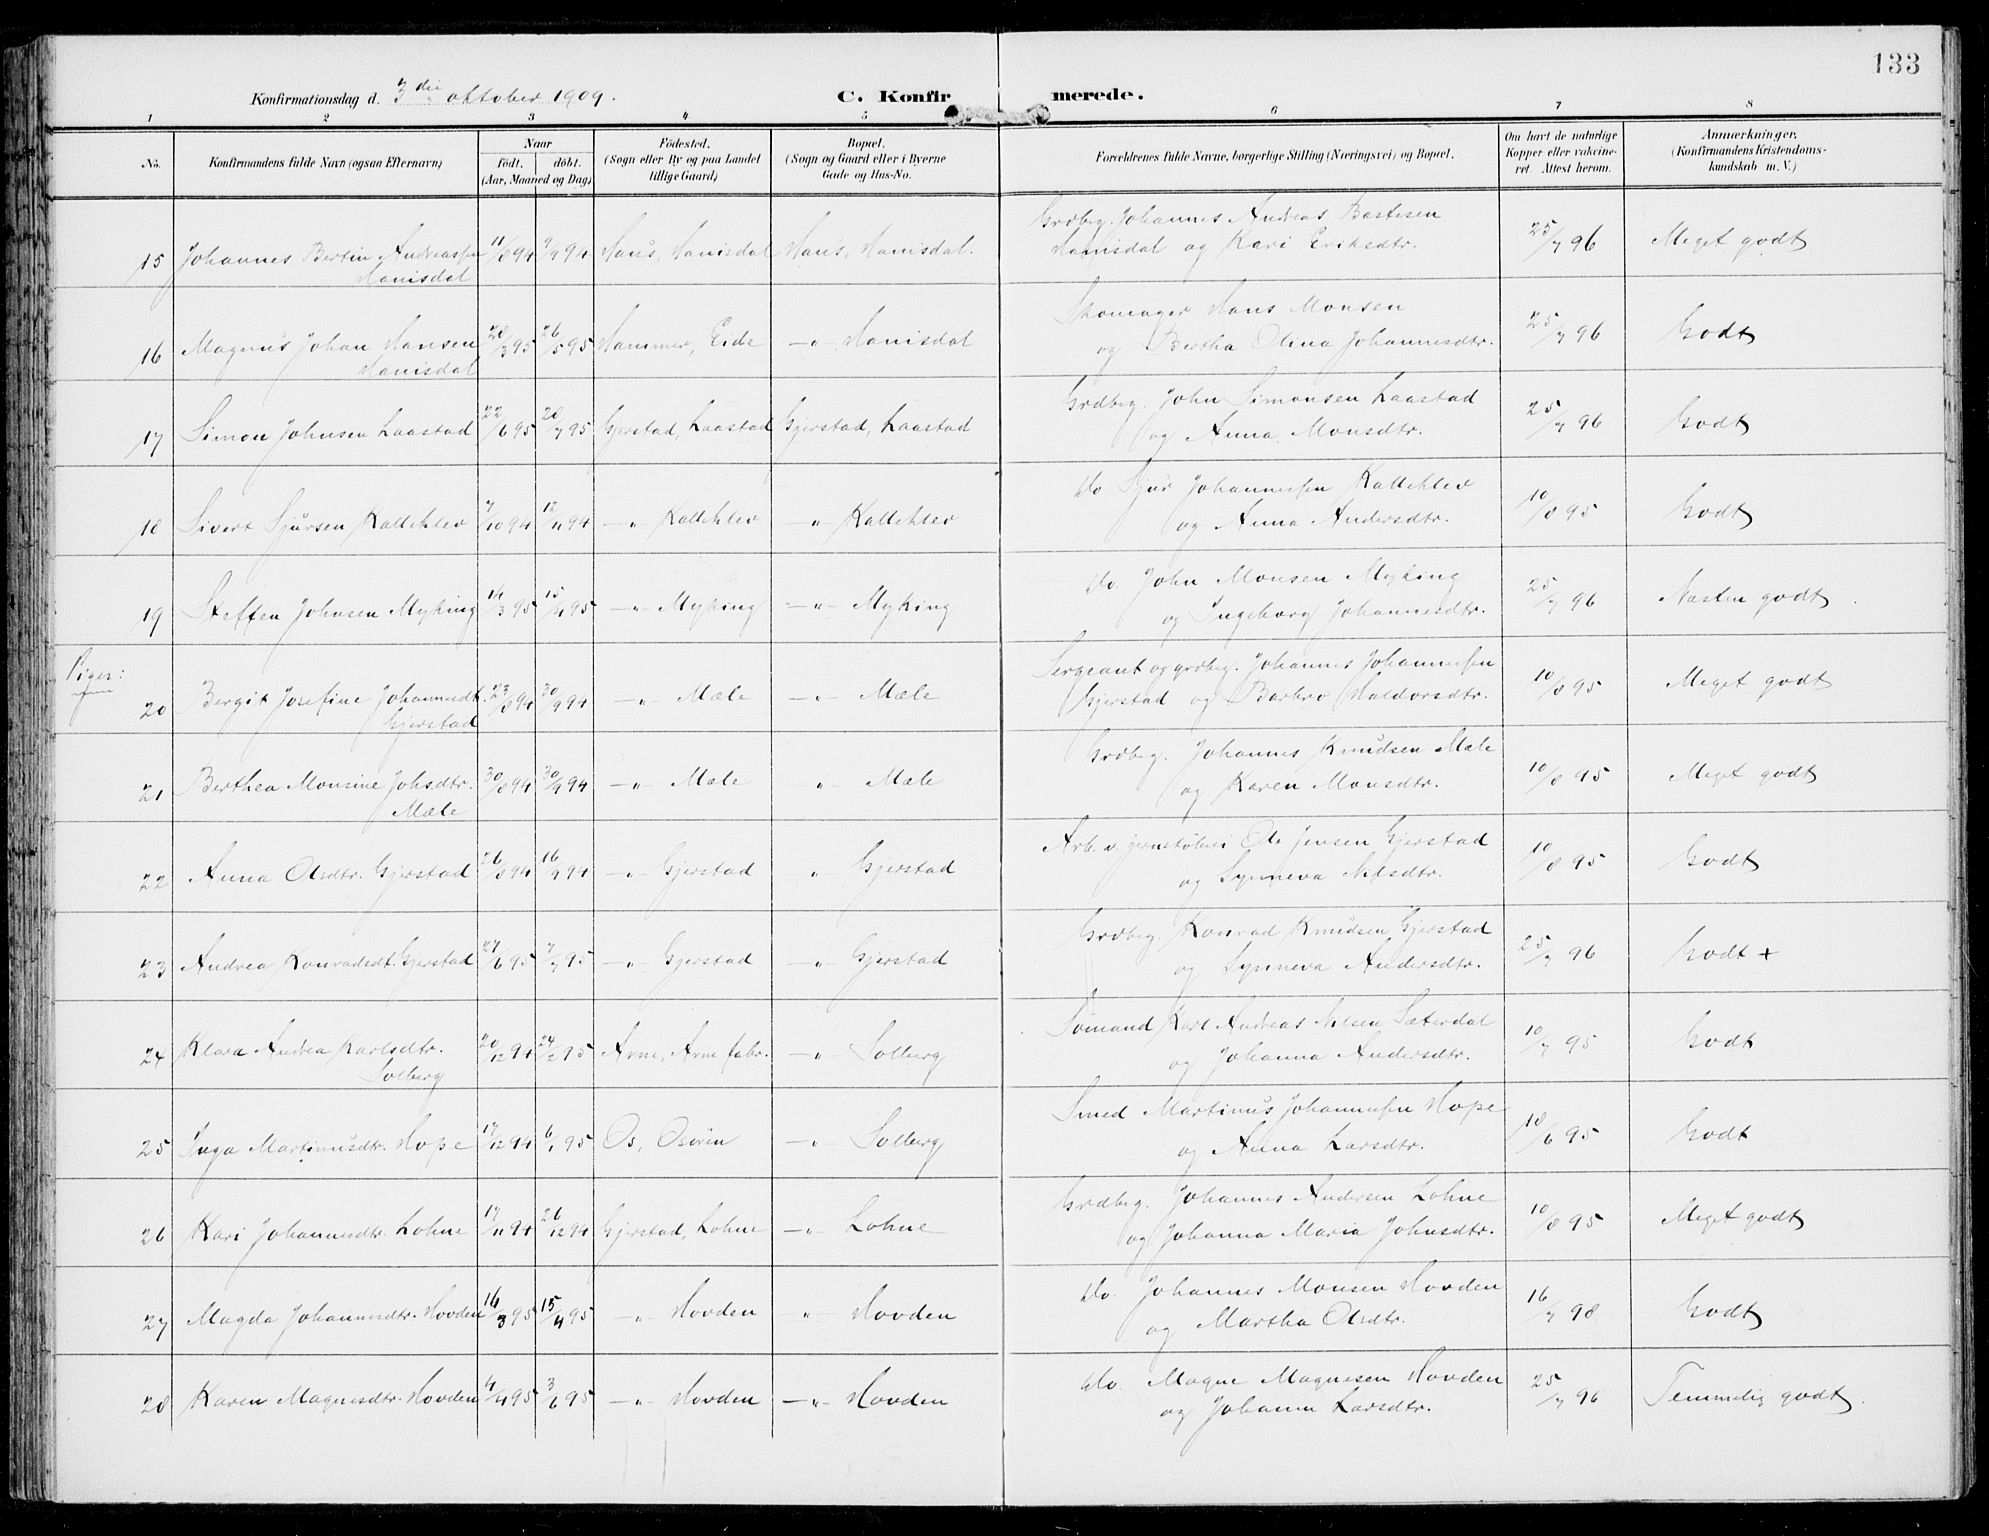 133
Konfirmationsdag d. 3die oktober 1909.
C. Konfirmerede.
1 2 3 4 5 6 7 8
No. | Konfirmandens fulde Navn (ogsaa Efternavn) | Naar födt. döbt. (Aar, Maaned og Dag) | Födested. (Sogn eller By og paa Landet tillige Gaard) | Bopæl. (Sogn og Gaard eller i Byerne Gade og Hus-No. | Forældrenes fulde Navne, borgerlige Stilling (Næringsvei) og Bopæl. | Om havt de naturlige Kopper eller vakcineret. Attest herom. | Anmærkninger, (Konfirmandens Kristendomskundskab m. V.)
15 Johannes Bertin Andreassen Hanisdal | 11/8 94 | 9/9 94 | Haus, Hanisdal | Haus, Hanisdal. | Grdbrg. Johannes Andreas Bastesen Hanisdal og Kari Eriksdtr. | 25/7 96 | Meget godt
16 Magnus Johan Hansen Hanisdal | 28/3 95 | 26/5 95 | Hammer, Eide | -"- Hanisdal | Skomager Hans Monsen og Bertha Olina Johannesdtr. | 25/7 96 | Godt
17 Simon Johnsen Laastad | 22/6 95 | 28/7 95 | Gjerstad, Laastad | Gjerstad, Laastad | Grdbrg. John Simonsen Laastad og Anna Monsdtr. | 25/7 96 | Godt
18 Sivert Sjursen Kalleklev | 7/10 94 | 12/11 94 | -"- Kalleklev | -"- Kalleklev | Do. Sjur Johannessen Kalleklev og Anna Andersdtr. | 10/8 95 | Godt
19 Steffen Johnsen Myking | 14/3 95 | 15/4 95 | -"- Myking | -"- Myking | Do. John Monsen Myking og Ingeborg Johannesdtr. | 25/7 96 | Næsten godt.
Piger:
20 Bergit Josefine Johannesdt. Gjerstad | 23/8 94 | 30/9 94 | -"- Mæle | -"- Mæle | Sergeant og grdbrg. Johannes Johannessen Gjerstad og Barbro Haldorsdtr. | 10/8 95 | Meget godt
21 Berthea Monsine Johsdtr. Mæle | 30/8 94 | 30/9 94 | -"- Mæle | " Mæle | Grdbrg. Johannes Knudsen Mæle og Karen Monsdtr. | 10/8 95 | Meget godt
22 Anna Olsdtr. Gjerstad | 26/8 94 | 16/9 94 | -"- Gjerstad | " Gjerstad | Arb. v. jernstøberi Ole Jensen Gjerstad og Synneva Nilsdtr. | 10/8 95 | Godt
23 Andrea Konradsdt. Gjerstad | 27/6 95 | 7/7 95 | -"- Gjerstad | " Gjerstad | Grdbrg. Konrad Knudsen Gjerstad og Synneva Andersdtr. | 25/7 96 | Godt +
24 Klara Andrea Karlsdtr. Solberg | 20/12 94 | 24/2 95 | Arne, Arne fabr. | -"- Solberg | Sömand Karl Andreas Nilsen Sæterdal og Johanna Andersdtr. | 10/7 95 | Godt
25 Inga Martinusdtr. Hope | 17/12 94 | 6/1 95 | Os, Osören | -"- Solberg | Smed Martinus Johannessen Hope og Anna Larsdtr. | 18/6 95 | Godt
26 Kari Johannesdtr. Lohne | 17/11 94 | 26/12 94 | Gjerstad, Lohne | -"- Lohne | Grdbrg. Johannes Andersen Lohne og Johanna Maria Johnsdtr. | 10/8 95 | Meget godt
27 Magda Johannesdtr. Hovden | 16/3 95 | 15/4 95 | -"- Hovden | " Hovden | Do. Johannes Monsen Hovden og Martha Olsdtr. | 16/7 98 | Godt
28 Karen Magnesdtr. Hovden | 4/4 95 | 3/6 95 | -"- Hovden | -"- Hovden | Do. Magne Magnesen Hovden og Johanna Larsdtr. | 25/7 96 | Temmelig godt.